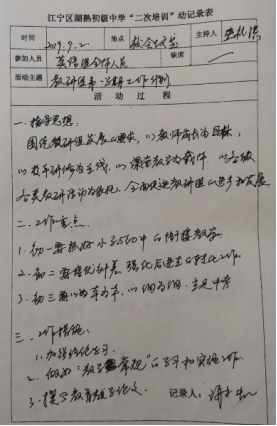 江宁区湖熟初级中学“二次培训”活动记录表
时间 2019.9.2 地点 校会议室 主持人
参加人员 英语组全体人员 缺席
活动主题 教研组第一学期工作计划
活动过程
一.指导思想
围绕教研组发展的要求,以教师成长为目标,
以教学研修为主线,以课堂教学为载体,以各级
各类教研活动为依托,全面促进教研组的进步和发展
二.工作重点
1.初一要抓好小学与初中的衔接教学
2.初二要培优补差 强化后进生的转化工作
3.初三要以为本,以纲为纲,立足中考
三.工作措施
1.加强理论学习
2.做好“教学常规”的学习和实施工作
3.撰写教育教学论文
记录人: